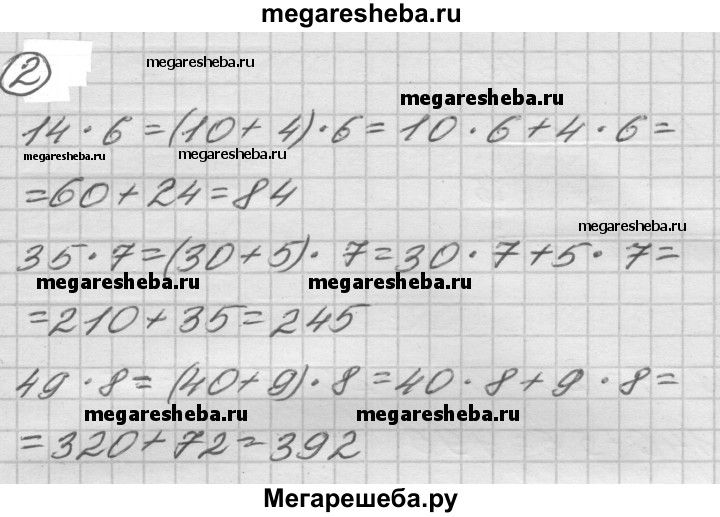 megaresheba.ru
2
megaresheba.ru
megaresheba.ru
14 · 6 = (10 + 4) · 6 = 10 · 6 + 4 · 6 =
megaresheba.ru megaresheba.ru
= 60 + 24 = 84
megaresheba.ru
35 · 7 = (30 + 5) · 7 = 30 · 7 + 5 · 7 =
megaresheba.ru megaresheba.ru
= 210 + 35 = 245
49 · 8 = (40 + 9) · 8 = 40 · 8 + 9 · 8 =
megaresheba.ru megaresheba.ru
= 320 + 72 = 392
Мегарешеба.ру